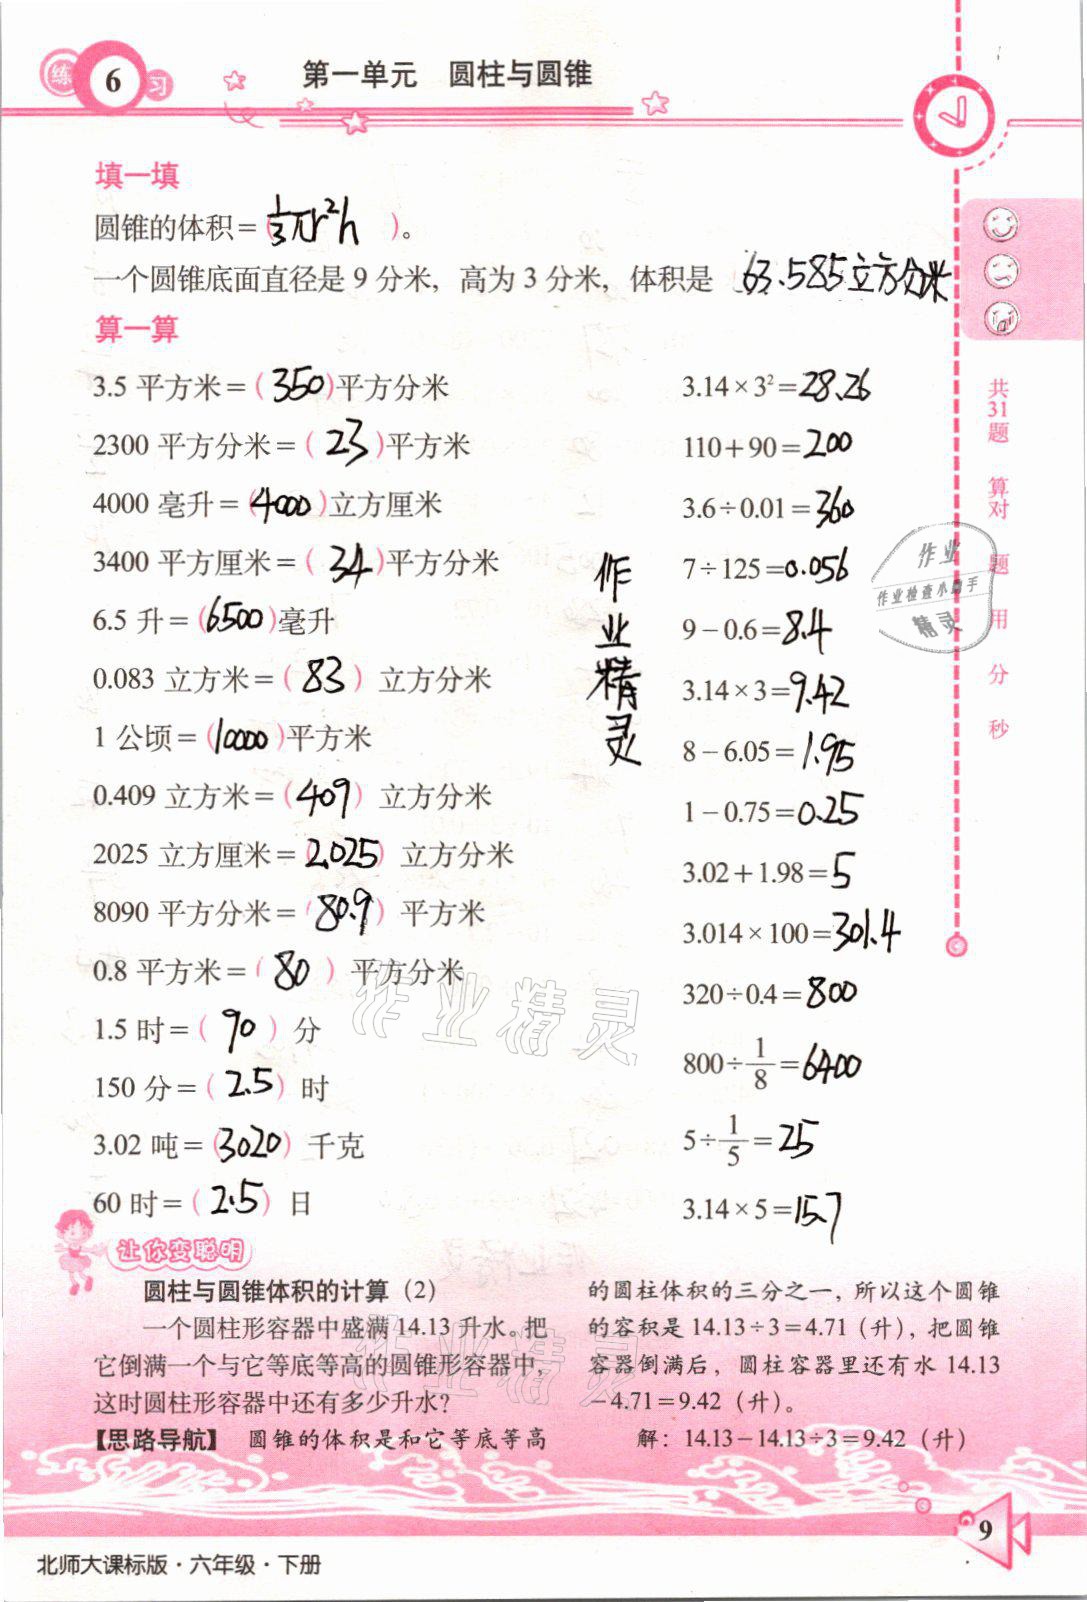 练 6 习
第一单元 圆柱与圆锥
填一填
圆锥的体积=(1/3πr²h)。
一个圆锥底面直径是9分米，高为3分米，体积是 63.585立方分米
算一算
3.5平方米=(350)平方分米
2300平方分米=(23)平方米
4000毫升=(4000)立方厘米
3400平方厘米=(34)平方分米
6.5升=(6500)毫升
0.083立方米=(83)立方分米
1公顷=(10000)平方米
0.409立方米=(409)立方分米
2025立方厘米=(2.025)立方分米
8090平方分米=(80.9)平方米
0.8平方米=(80)平方分米
1.5时=(90)分
150分=(2.5)时
3.02吨=(3020)千克
60时=(2.5)日
3.14×3²=28.26
110+90=200
3.6÷0.01=360
7÷125=0.056
9-0.6=8.4
3.14×3=9.42
8-6.05=1.95
1-0.75=0.25
3.02+1.98=5
3.014×100=301.4
320÷0.4=800
800÷1/8=6400
5÷1/5=25
3.14×5=15.7
作业精灵
共31题 算对 题 用 分 秒
作业
作业检查小助手
精灵
作业精灵
让你变聪明
圆柱与圆锥体积的计算（2）
一个圆柱形容器中盛满14.13升水。把
它倒满一个与它等底等高的圆锥形容器中，
这时圆柱形容器中还有多少升水？
【思路导航】 圆锥的体积是和它等底等高
的圆柱体积的三分之一，所以这个圆锥
的容积是14.13÷3=4.71（升），把圆锥
容器倒满后，圆柱容器里还有水14.13
-4.71=9.42（升）。
解：14.13-14.13÷3=9.42（升）
作业精灵
9
北师大课标版·六年级·下册